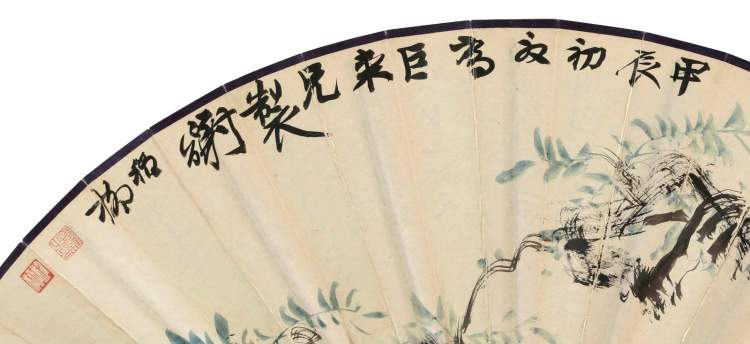 甲辰初夏為巨来兄製謝稚柳